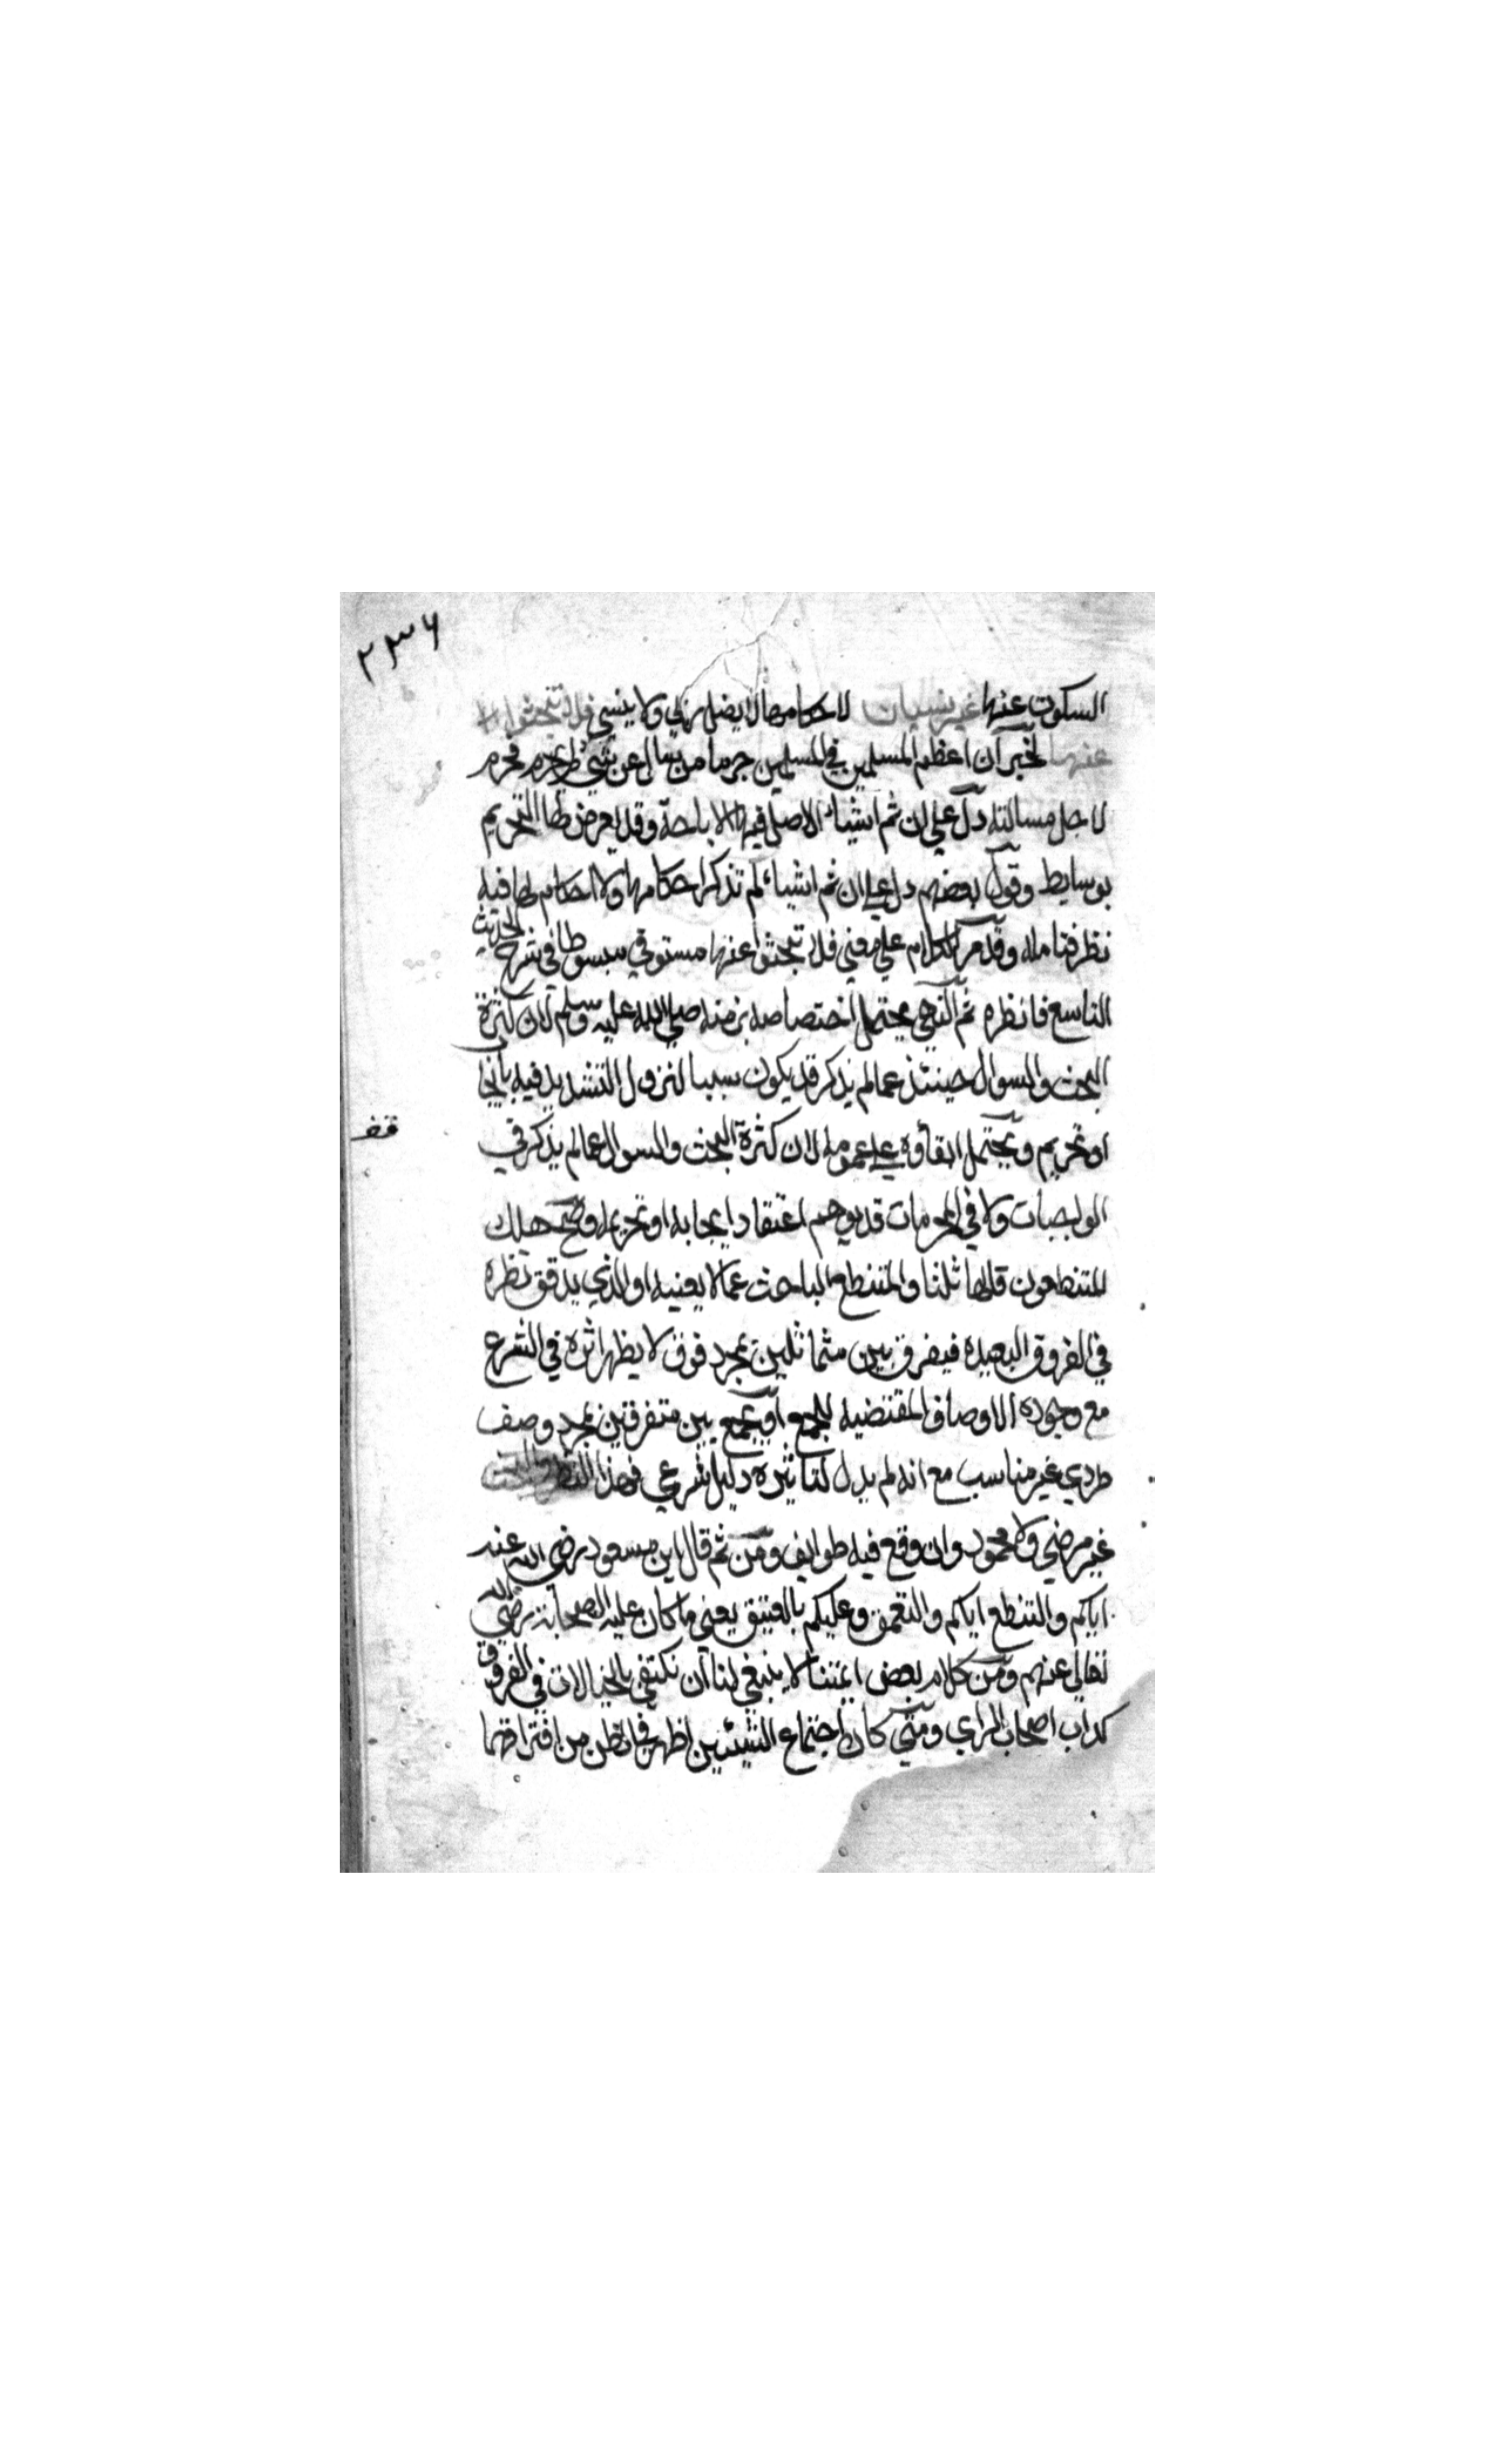 ٢٣٦
السكوت عنها غير نسيان لاحكامها لا يضل ربي ولا ينسى فلا تبحثوا
عنها لخبر ان اعظم المسلمين في المسلمين جرما من سال عن شي لم يحرم فحرم
لاجل مسالته دل على ان ثم اشياء الاصل فيها الاباحة وقد يعرض لها التحريم
بوسايط وقول بعضهم دل على ان ثم اشياء لم تذكر احكامها ولا احكام لها فيه
نظر فتامله وقد مر الكلام على معنى فلا تبحثوا عنها مستوفي مبسوطا في شرح الحديث
التاسع فانظره ثم النهي يحتمل اختصاصه بزمنه صلى الله عليه وسلم لان كثرة
البحث والسوال حينئذ عما لم يذكر قد يكون سببا لنزول التشديد فيه بايجا
او تحريم ويحتمل ابقاؤه على عمومه لان كثرة البحث والسوال عما لم يذكر في
الواجبات ولا في المحرمات قد يوهم اعتقاد ايجابه او تحريمه وصح هلك
المتنطعون قالها ثلثا والمتنطع الباحث عما لا يعنيه او الذي يدقق نظره
في الفروق البعيده فيفرق بين متماثلين بمجرد فوق لا يظهر اثره في الشرع
مع وجوده الاوصاف المقتضيه للجمع او يجمع بين متفرقين بمجرد وصف
طردي غير مناسب مع انه لم يدل لتاثيره دليل شرعي فهذا النظر والبحث
غير مرضي ولا محمود وان وقع فيه طوايف ومن ثم قال ابن مسعود رضي الله عنه
اياكم والتنطع اياكم والتعمق وعليكم بالعتيق يعني ما كان عليه الصحابة رضي الله
تعالى عنهم ومن كلام بعض ايمتنا لا ينبغي لنا ان نكتفي بالخيالات في الفروق
كداب اصحاب الراي ومتى كان اجتماع الشيئين اظهر في الظن من افتراقهما